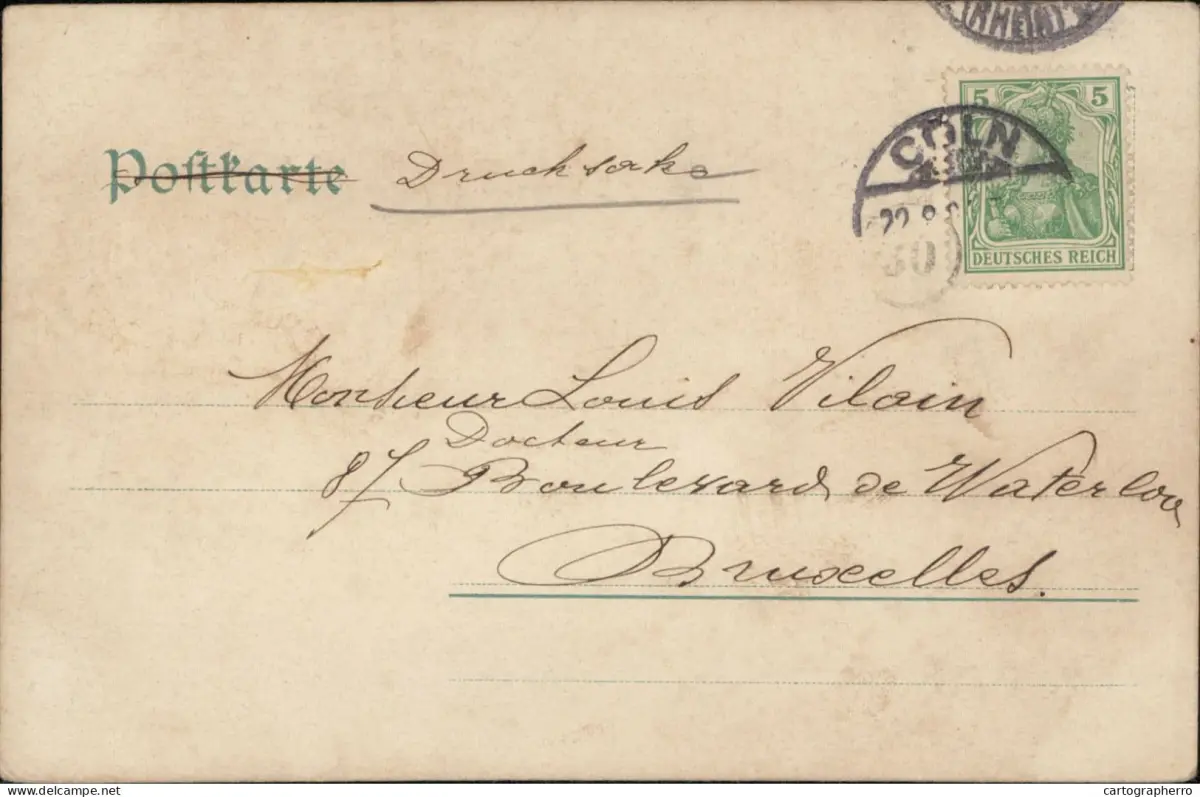 5 5
CÖLN
22.8
30
DEUTSCHES REICH
Postkarte Drucksake
Monsieur Louis Vilain
Docteur
87 Boulevard de Waterloo
Bruxelles.
delcampe.net
cartographerro